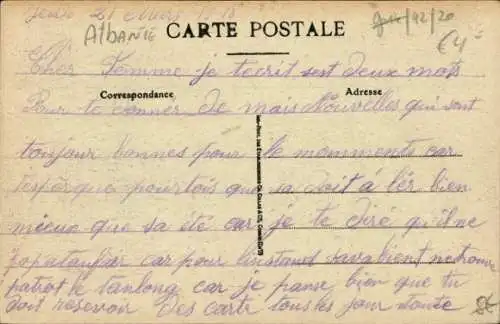 Jeudi 21 Mars 1918
Albanie
CARTE POSTALE
92/20
€4
Cher Femme je tecrit sest deux mots
Correspondance
Adresse
Pour te donner de mais Nouvelles qui sont
toujour bonnes pour le momments car
jespèrque pourtois que sa doit à lér bien
mieux que sa été car je te diré qu'il ne
fo patanfair car pour linstand savabient ne trouve
patrot le tanlong car je panse bien que tu
doit resevoir Des carte tous les jour toute
8€